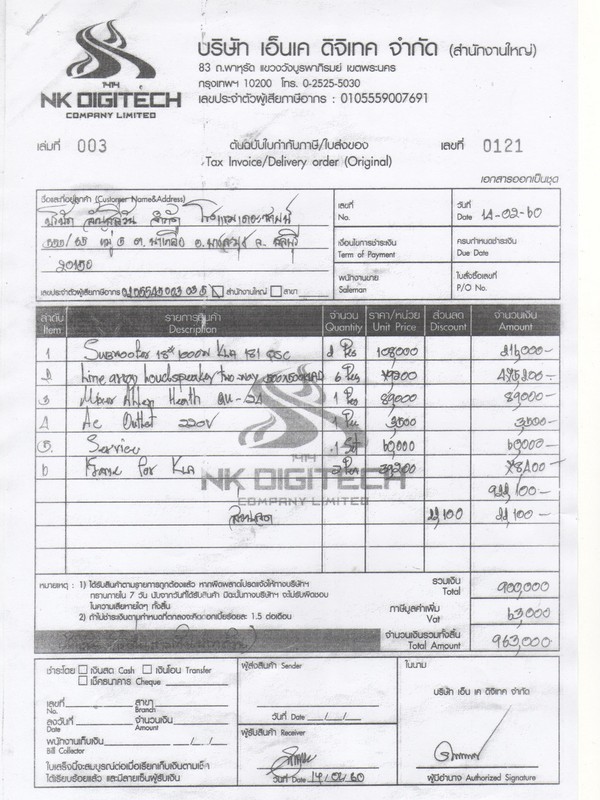 NK DIGITECH
COMPANY LIMITED
บริษัท เอ็นเค ดิจิเทค จำกัด (สำนักงานใหญ่)
83 ถ.พาหุรัด แขวงวังบูรพาภิรมย์ เขตพระนคร
กรุงเทพฯ 10200 โทร. 0-2525-5030
เลขประจำตัวผู้เสียภาษีอากร : 0105559007691
เล่มที่ 003
ต้นฉบับใบกำกับภาษี/ใบส่งของ
Tax Invoice/Delivery order (Original)
เลขที่ 0121
เอกสารออกเป็นชุด
ชื่อและที่อยู่ลูกค้า (Customer Name&Address)
บริษัท จำกัด
20150
เลขประจำตัวผู้เสียภาษีอากร สำนักงานใหญ่ สาขา
เลขที่
No.
วันที่
Date 14-02-60
เงื่อนไขการชำระเงิน
Term of Payment
ครบกำหนดชำระเงิน
Due Date
พนักงานขาย
Saleman
ใบสั่งซื้อเลขที่
P/O No.
ลำดับ รายการสินค้า จำนวน ราคา/หน่วย ส่วนลด จำนวนเงิน
Item Description Quantity Unit Price Discount Amount
1 Subwoofer 18" 1000W KLA 181 QSC 2 Pcs 108,000 216,000-
2 Line array 6 Pcs
3 Mixer Allen Heath QU-24 1 Pcs 89,000 89,000-
4 Ac Outlet 220V 1 Pcs 3,500 3,500-
5. Service 1 Set 60,000 60,000-
6 Frame for KLA 2 Pcs 39,200 78,400-
922,100-
ส่วนลด 22,100 22,100-
NK DIGITECH
COMPANY LIMITED
หมายเหตุ : 1) ได้รับสินค้าตามรายการถูกต้องแล้ว หากผิดพลาดโปรดแจ้งให้ทางบริษัทฯ
ทราบภายใน 7 วัน นับจากวันที่ได้รับสินค้า มิฉะนั้นทางบริษัทฯ จะไม่รับผิดชอบ
ในความเสียหายใดๆ ทั้งสิ้น
2) ถ้าไม่ชำระเงินตามกำหนดที่ตกลงจะคิดดอกเบี้ยร้อยละ 1.5 ต่อเดือน
รวมเงิน
Total 900,000
ภาษีมูลค่าเพิ่ม
Vat 63,000
จำนวนเงินรวมทั้งสิ้น
Total Amount 963,000
ชำระโดย เงินสด Cash เงินโอน Transfer
เช็คธนาคาร Cheque
เลขที่ สาขา
No. Branch
ลงวันที่ จำนวนเงิน
Date Amount
พนักงานเก็บเงิน
Bill Collector
ใบเสร็จนี้จะสมบูรณ์ต่อเมื่อเรียกเก็บเงินตามเช็ค
ได้เรียบร้อยแล้ว และมีลายเซ็นผู้รับเงิน
ผู้ส่งสินค้า Sender
วันที่ Date
ผู้รับสินค้า Receiver
วันที่ Date 14/02/60
ในนาม
บริษัท เอ็น เค ดิจิเทค จำกัด
ผู้มีอำนาจ Authorized Signature